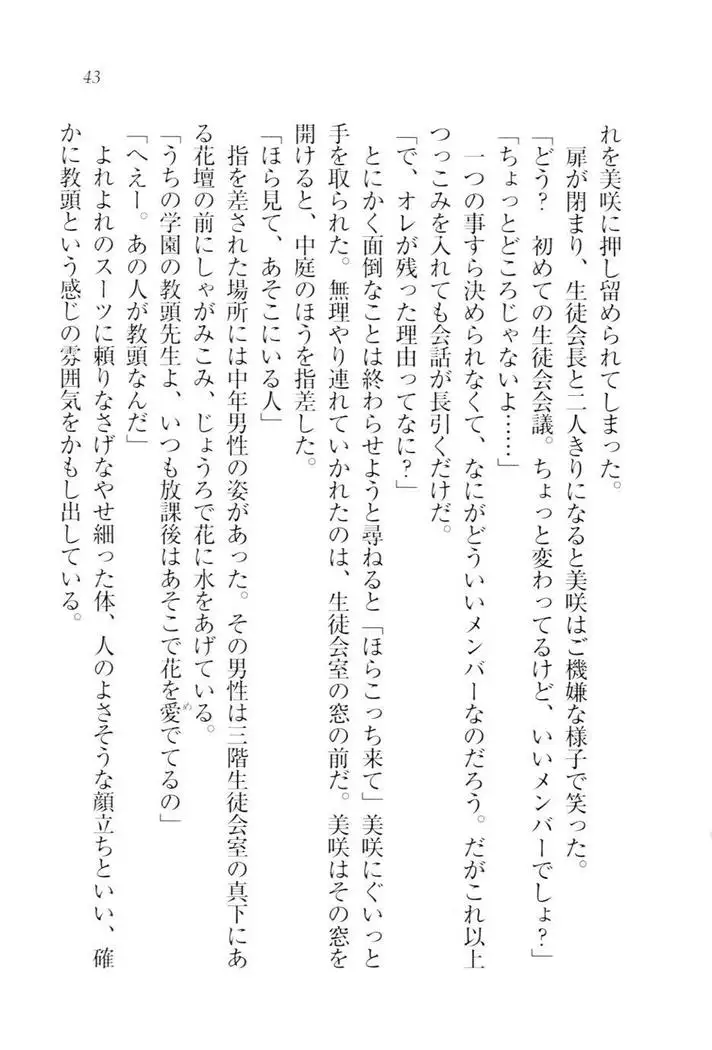 43
れを美咲に押し留められてしまった。
　扉が閉まり、生徒会長と二人きりになると美咲はご機嫌な様子で笑った。
「どう？　初めての生徒会会議。ちょっと変わってるけど、いいメンバーでしょ？」
「ちょっとどころじゃないよ……」
　一つの事すら決められなくて、なにがどういいメンバーなのだろう。だがこれ以上
つっこみを入れても会話が長引くだけだ。
「で、オレが残った理由ってなに？」
　とにかく面倒なことは終わらせようと尋ねると「ほらこっち来て」美咲にぐいっと
手を取られた。無理やり連れていかれたのは、生徒会室の窓の前だ。美咲はその窓を
開けると、中庭のほうを指差した。
「ほら見て、あそこにいる人」
　指を差された場所には中年男性の姿があった。その男性は三階生徒会室の真下にあ
る花壇の前にしゃがみこみ、じょうろで花に水をあげている。
「うちの学園の教頭先生よ、いつも放課後はあそこで花を愛でてるの」
め
「へえー。あの人が教頭なんだ」
　よれよれのスーツに頼りなさげなやせ細った体、人のよさそうな顔立ちといい、確
かに教頭という感じの雰囲気をかもし出している。